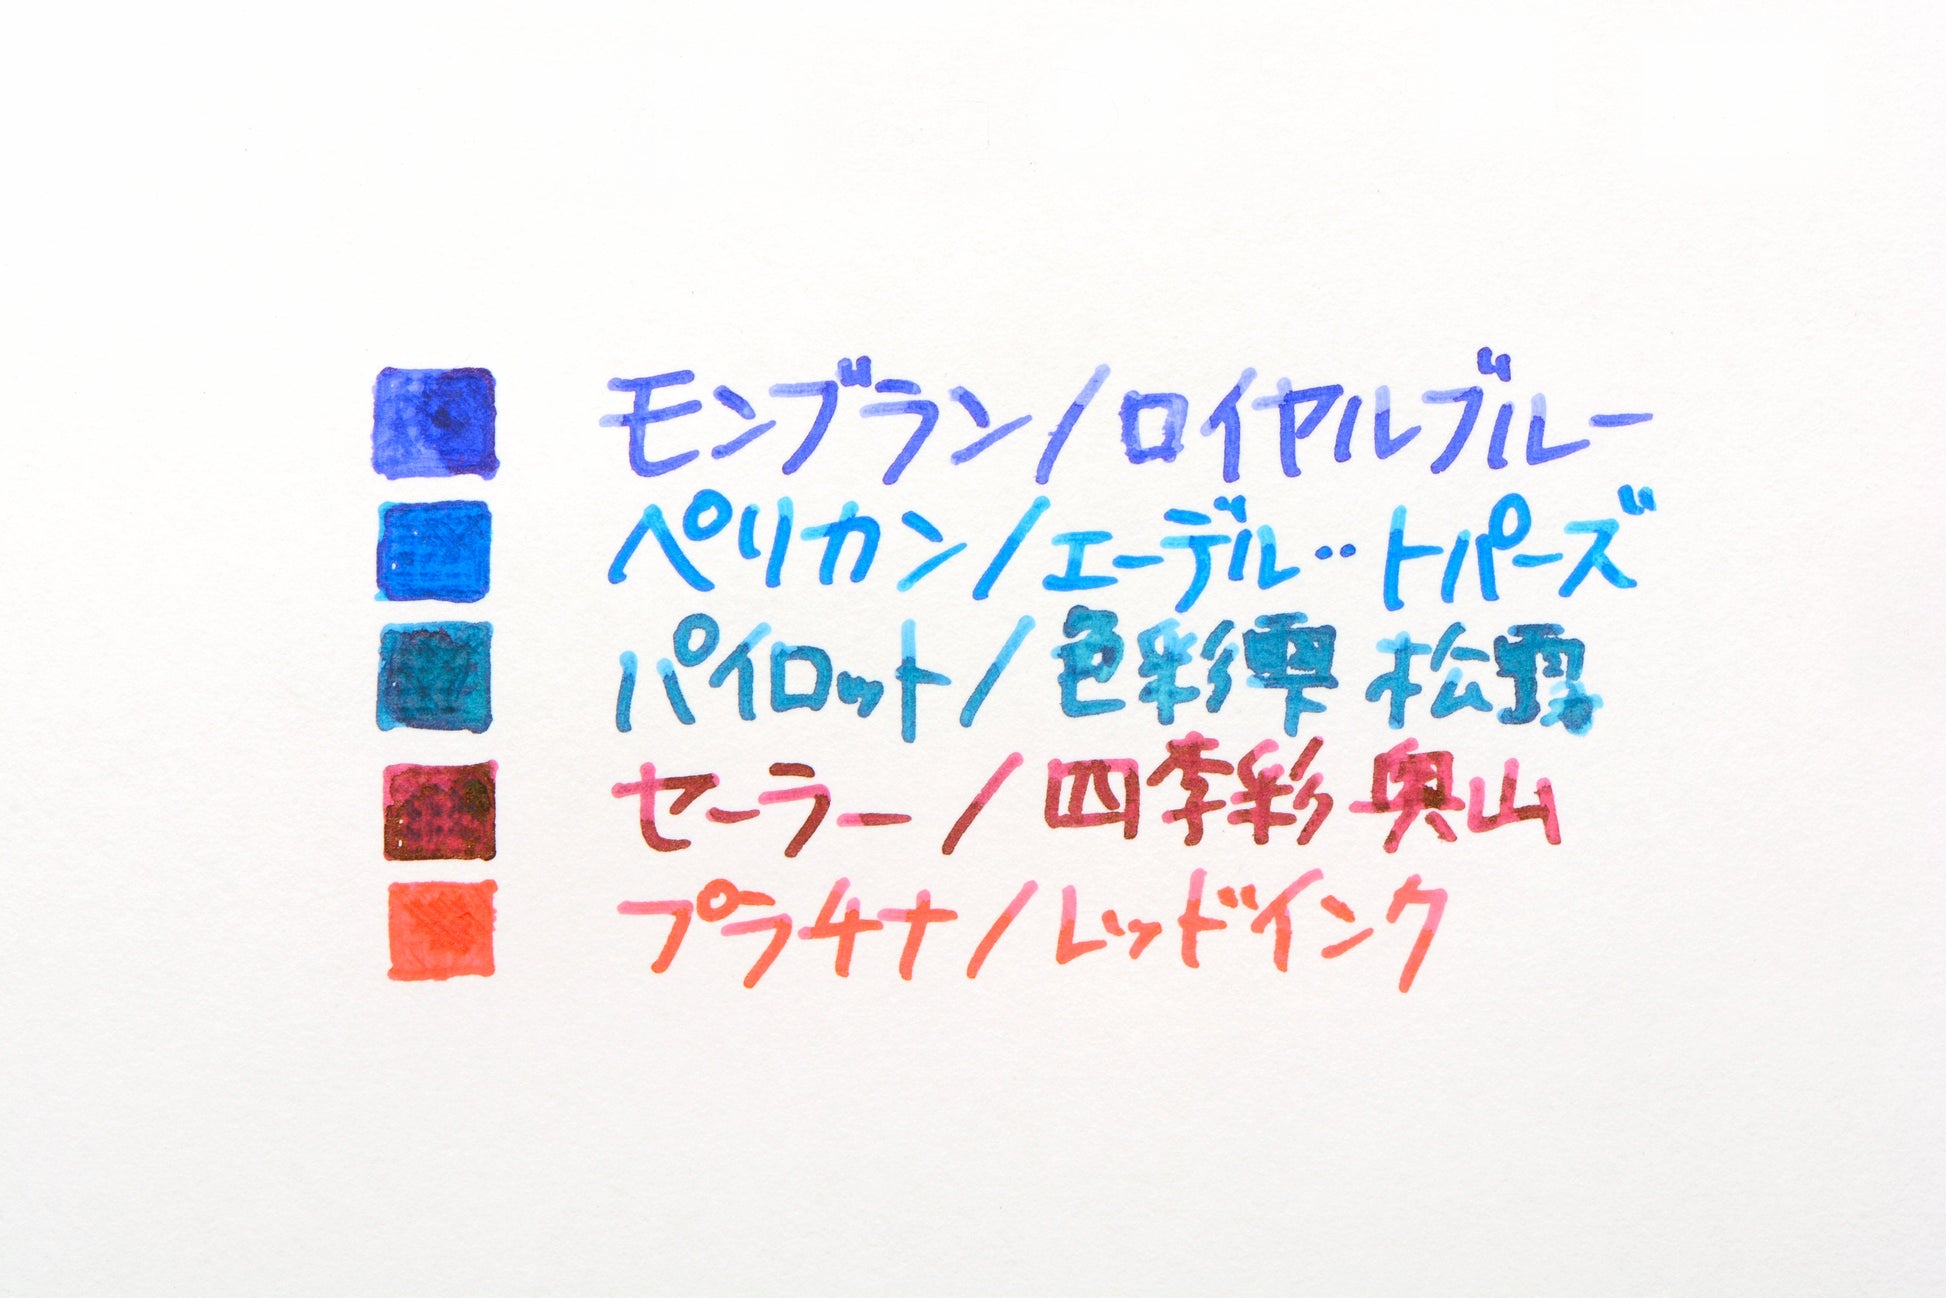 モンブラン/ロイヤルブルー
ペリカン/エーデル‥トパーズ
パイロット/色彩雫 松露
セーラー/四季彩 奥山
プラチナ/レッドインク